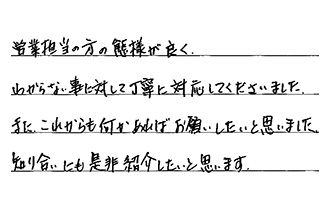 営業担当の方の態様が良く、
わからない事に対して丁寧に対応してくださいました。
また、これからも何かあればお願いしたいと思いました。
知り合いにも是非紹介したいと思います。